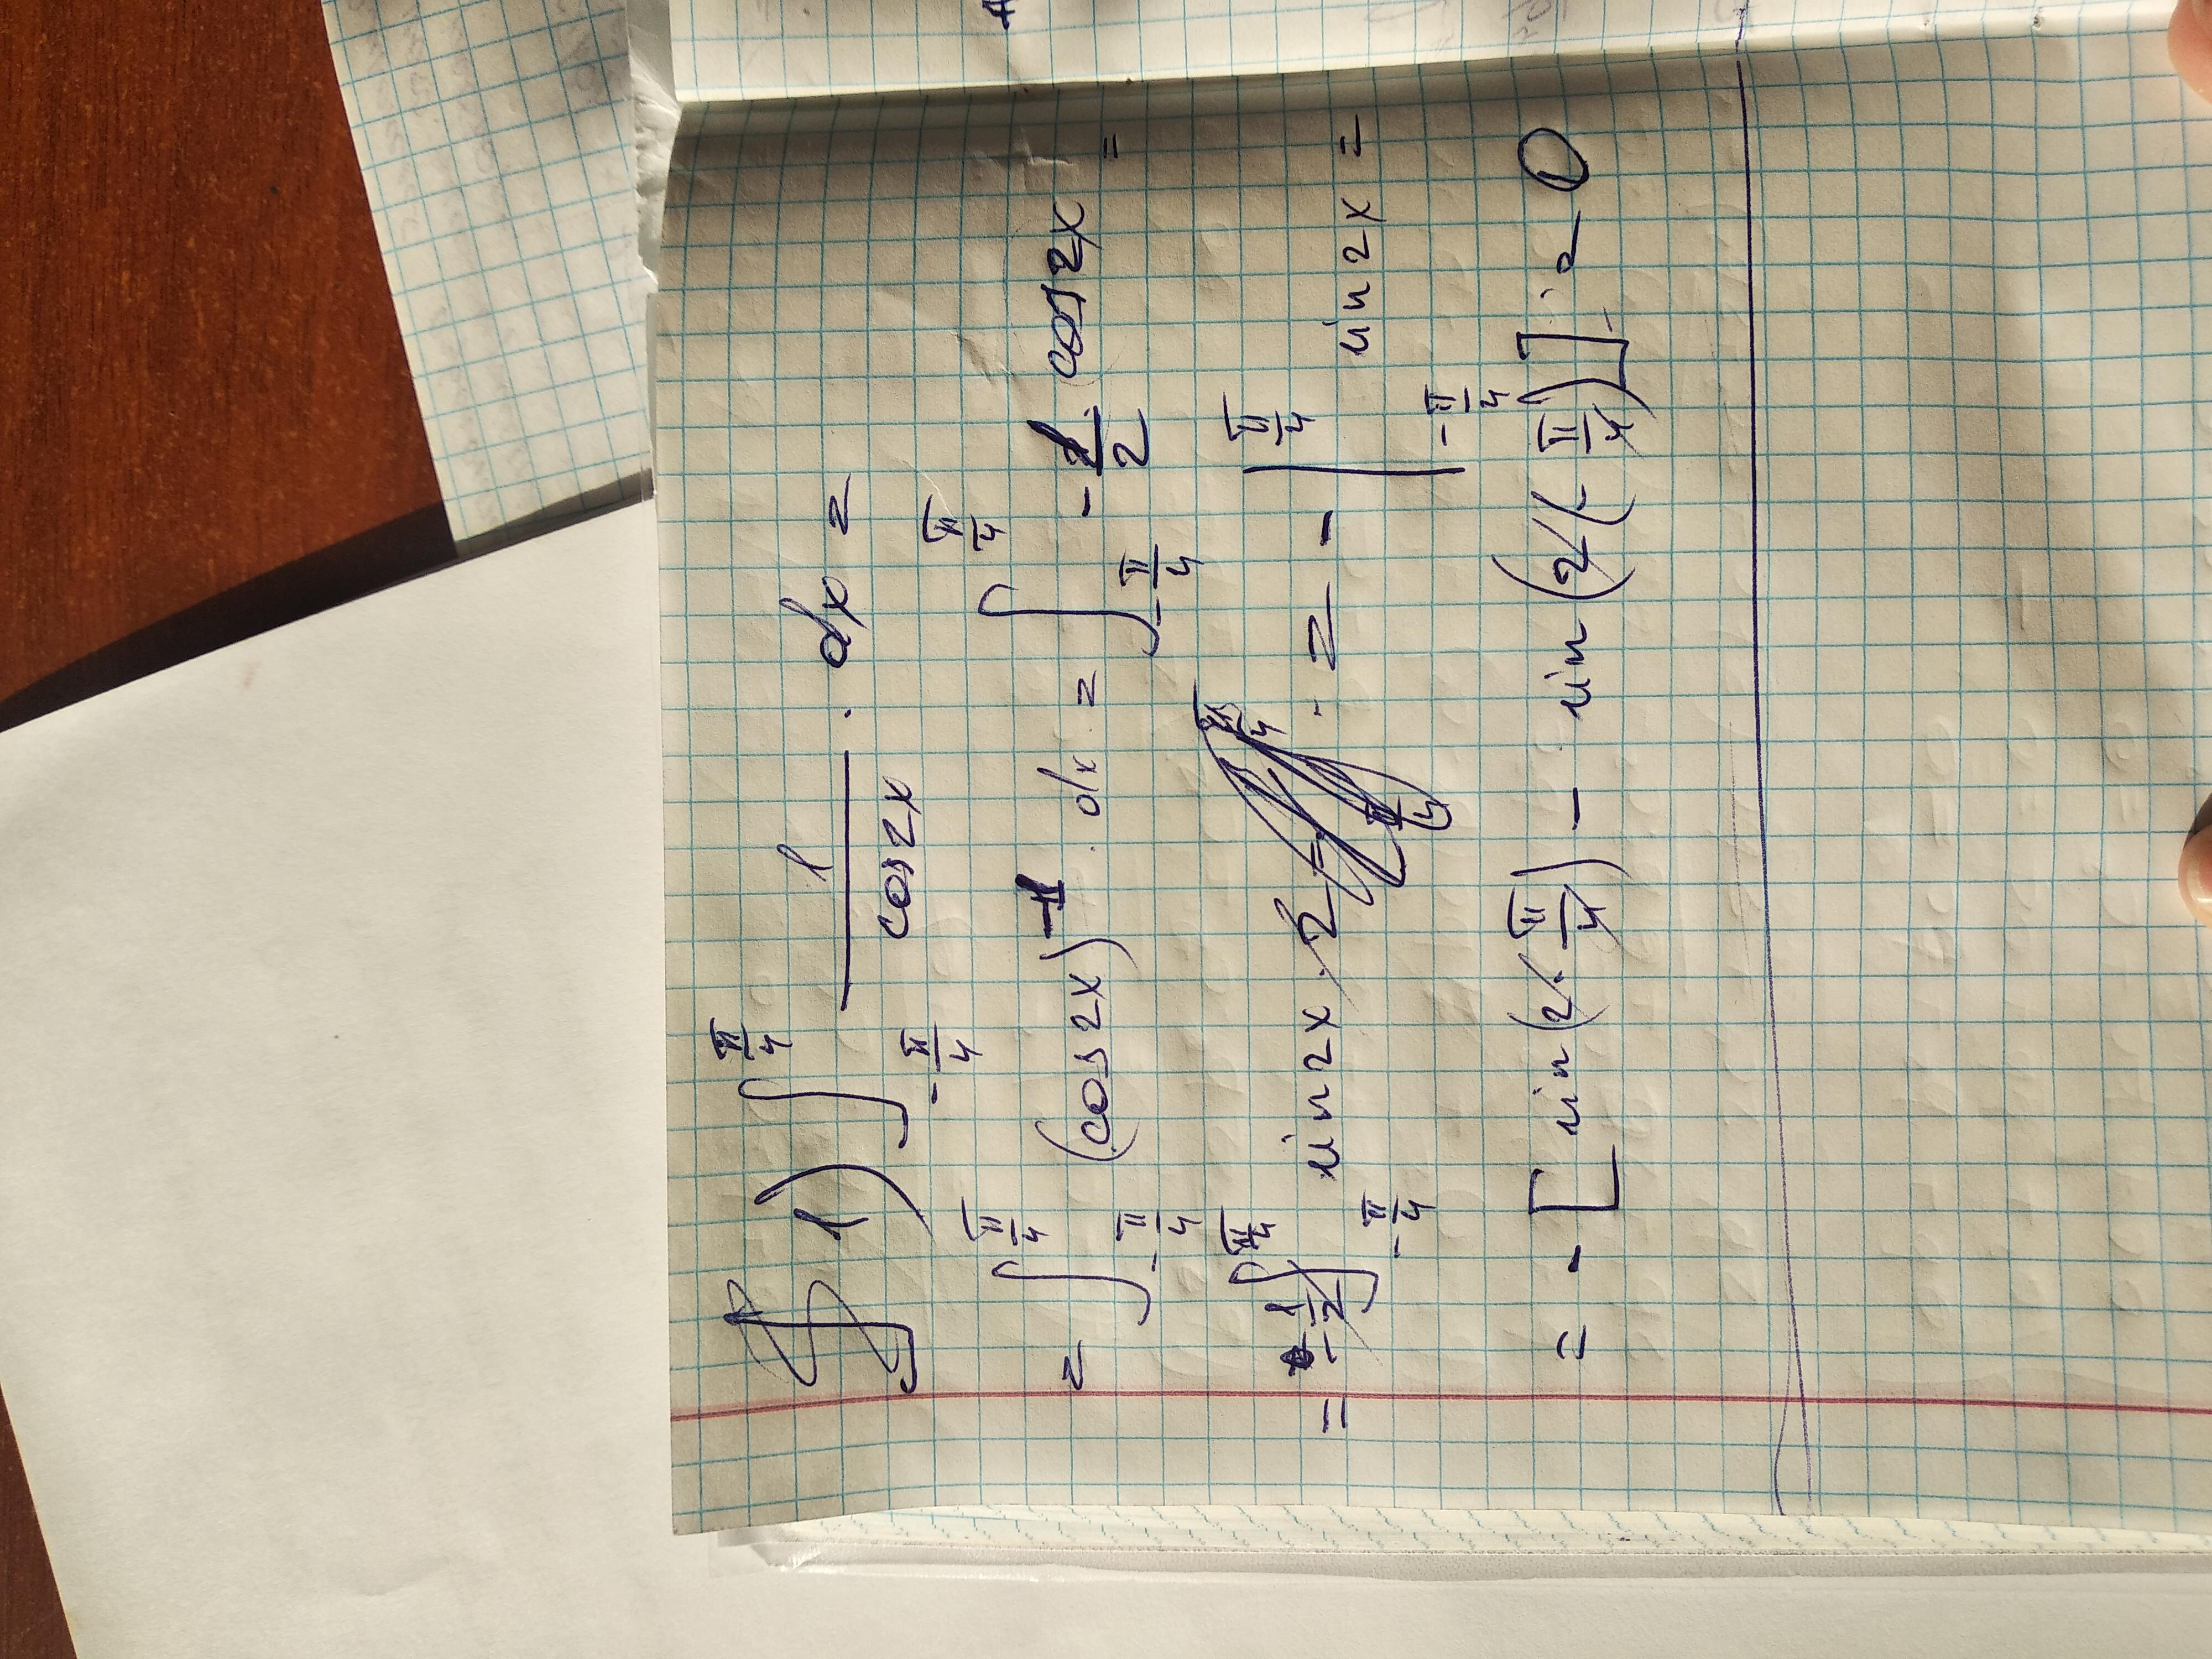 1) ∫_{-π/4}^{π/4} 1/cos2x · dx =
= ∫_{-π/4}^{π/4} (cos2x)^{-1} · dx = ∫_{-π/4}^{π/4} -1/2 · cos2x =
= -1/2 ∫_{-π/4}^{π/4} sin2x · 2 · = - |_{-π/4}^{π/4} sin2x =
= -[sin(2·π/4) - sin(2·(-π/4))] = 0